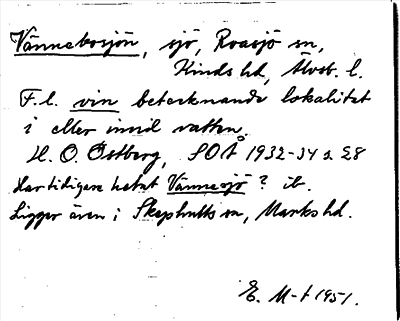 Vännebosjön, sjö, Roasjö sn,
Kinds hd, Älvsb. l.
F. l. vin betecknande lokalitet
i eller invid vatten.
H. O. Östberg, SOÅ 1932-34 s. 28
Har tidigare hetat Vännesjö? ib.
Ligger även i Skephults sn, Marks hd.
E. M-t 1951.